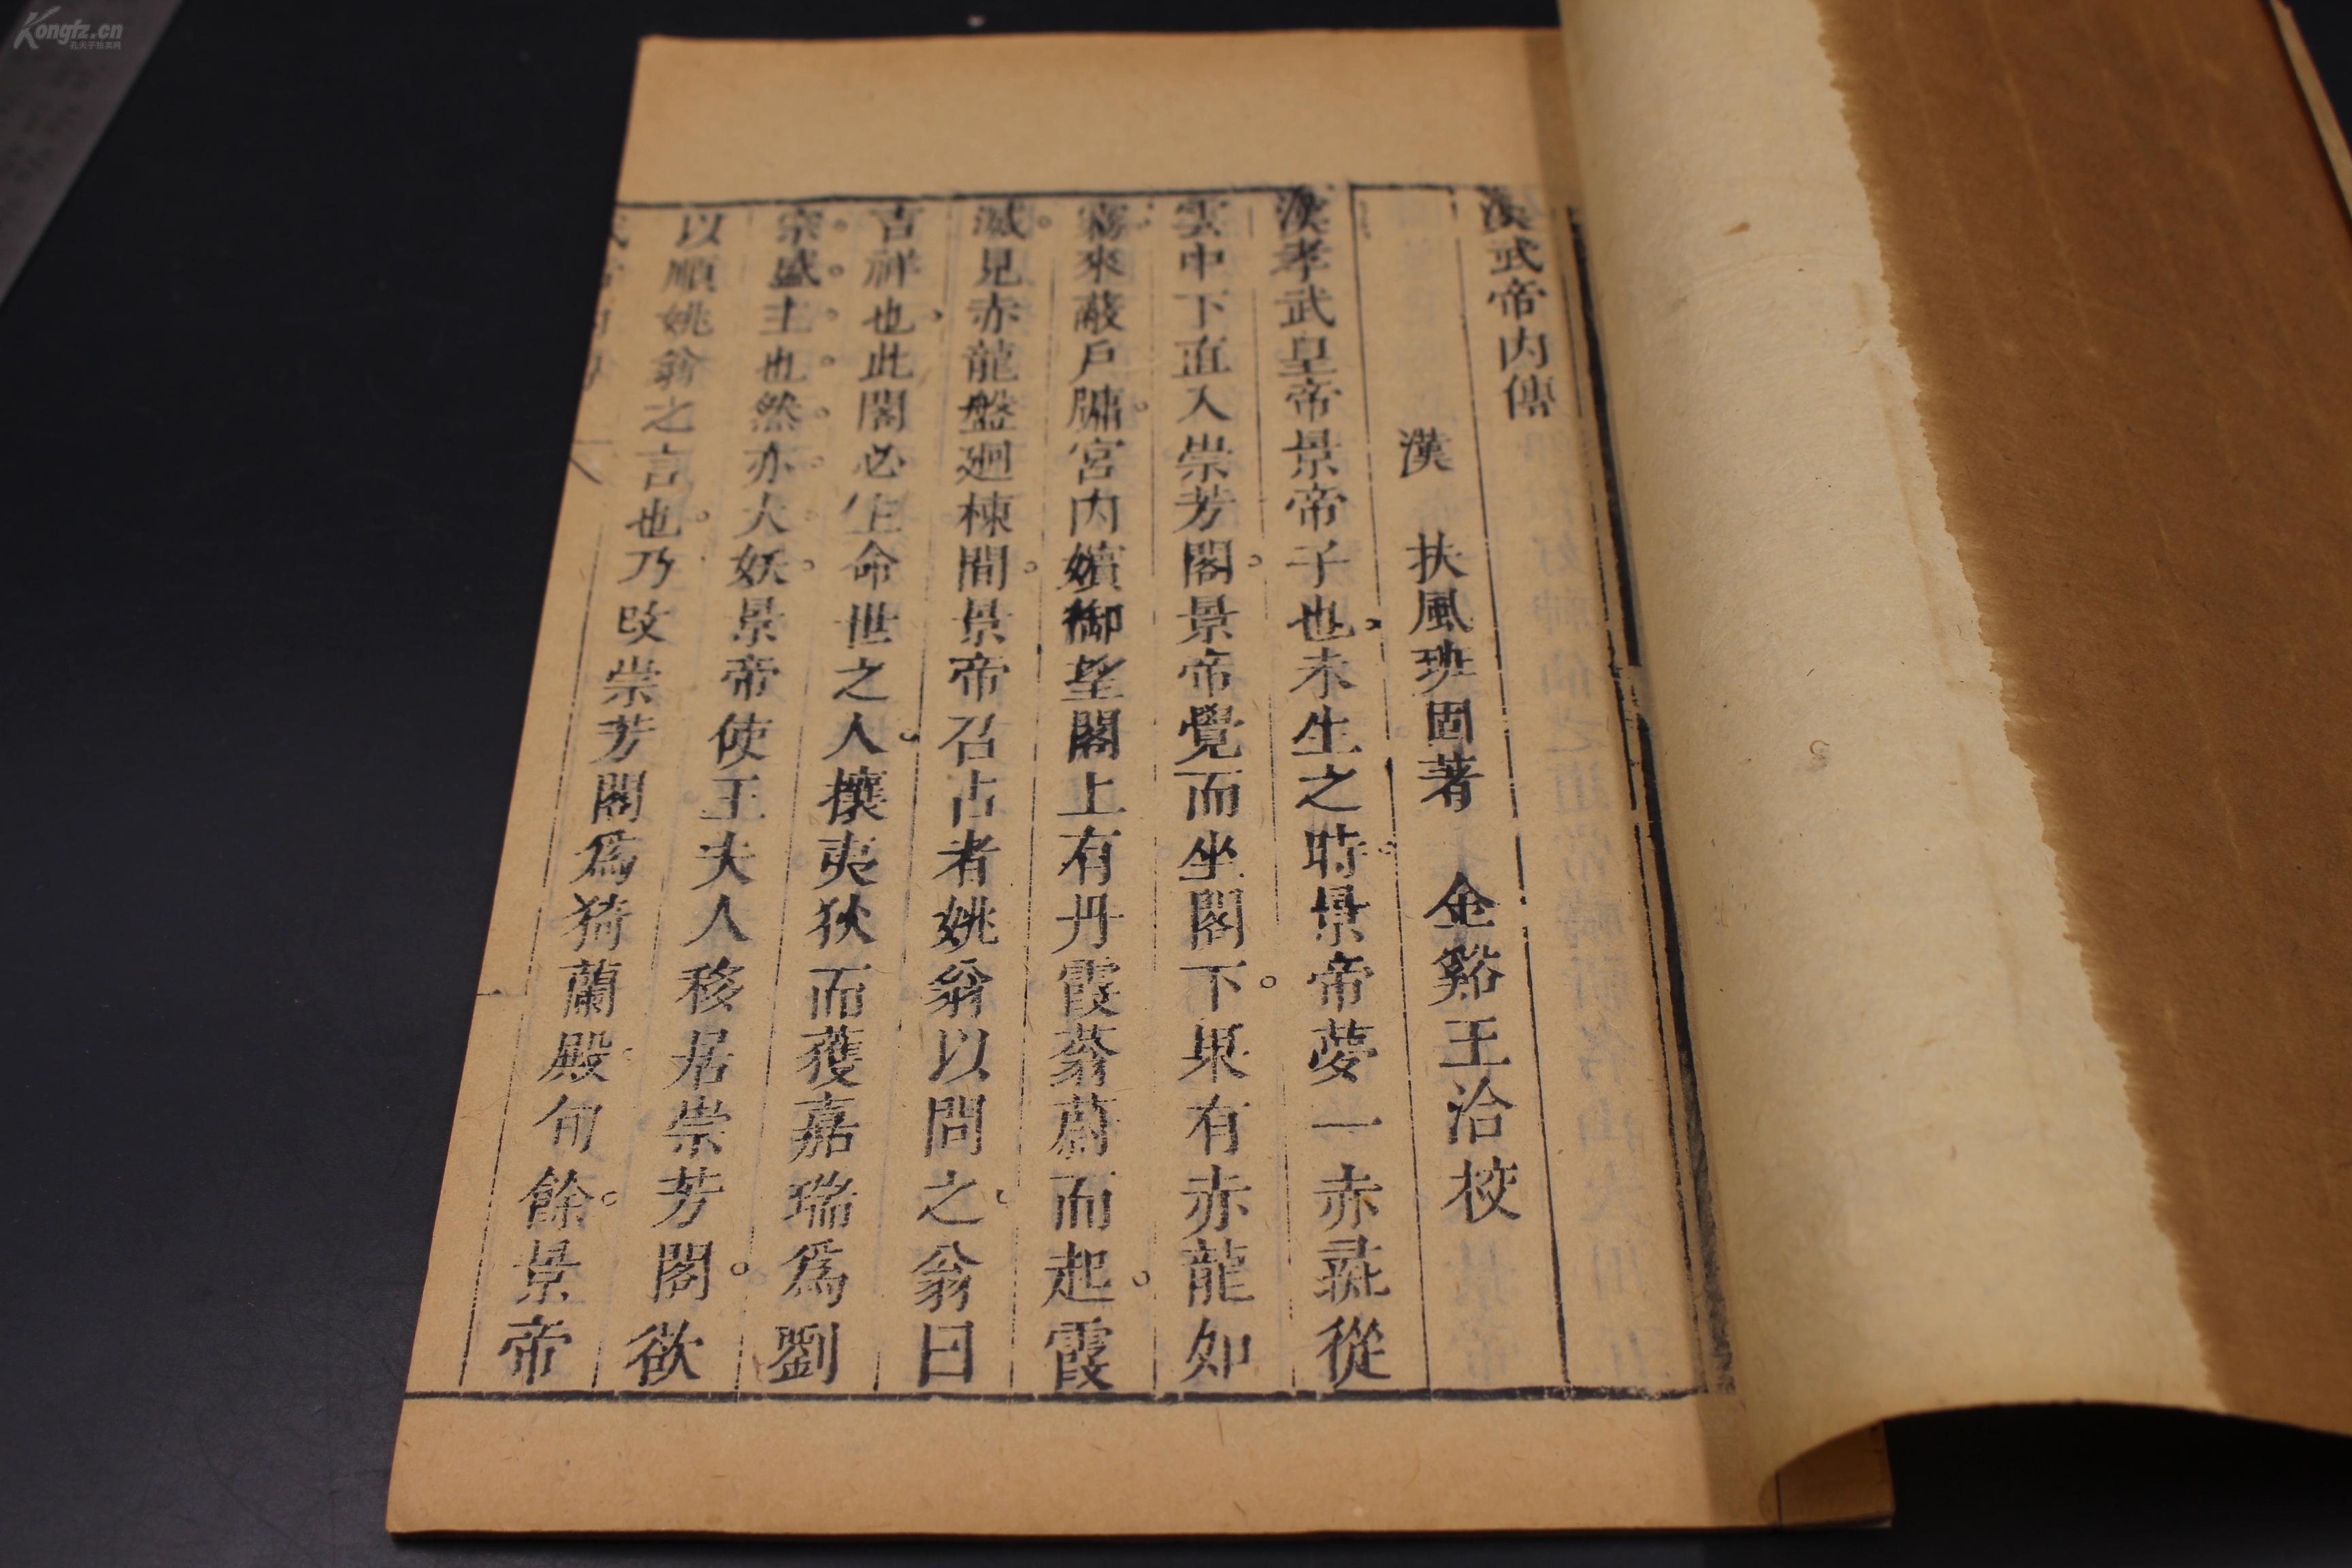 漢武帝内傳
漢 扶風班固著 金谿王洽校
漢孝武皇帝景帝子也未生之時景帝夢一赤彘從
雲中下直入崇芳閣景帝覺而坐閣下果有赤龍如
霧來蔽戸牗宮内嬪御望閣上有丹霞蓊蔚而起霞
滅見赤龍盤廻棟間景帝召占者姚翁以問之翁曰
吉祥也此閣必生命世之人攘夷狄而獲嘉瑞爲劉
宗盛主也然亦大妖景帝使王夫人移居崇芳閣欲
以順姚翁之言也乃改崇芳閣爲猗蘭殿旬餘景帝
Kongfz.cn
孔夫子拍卖网